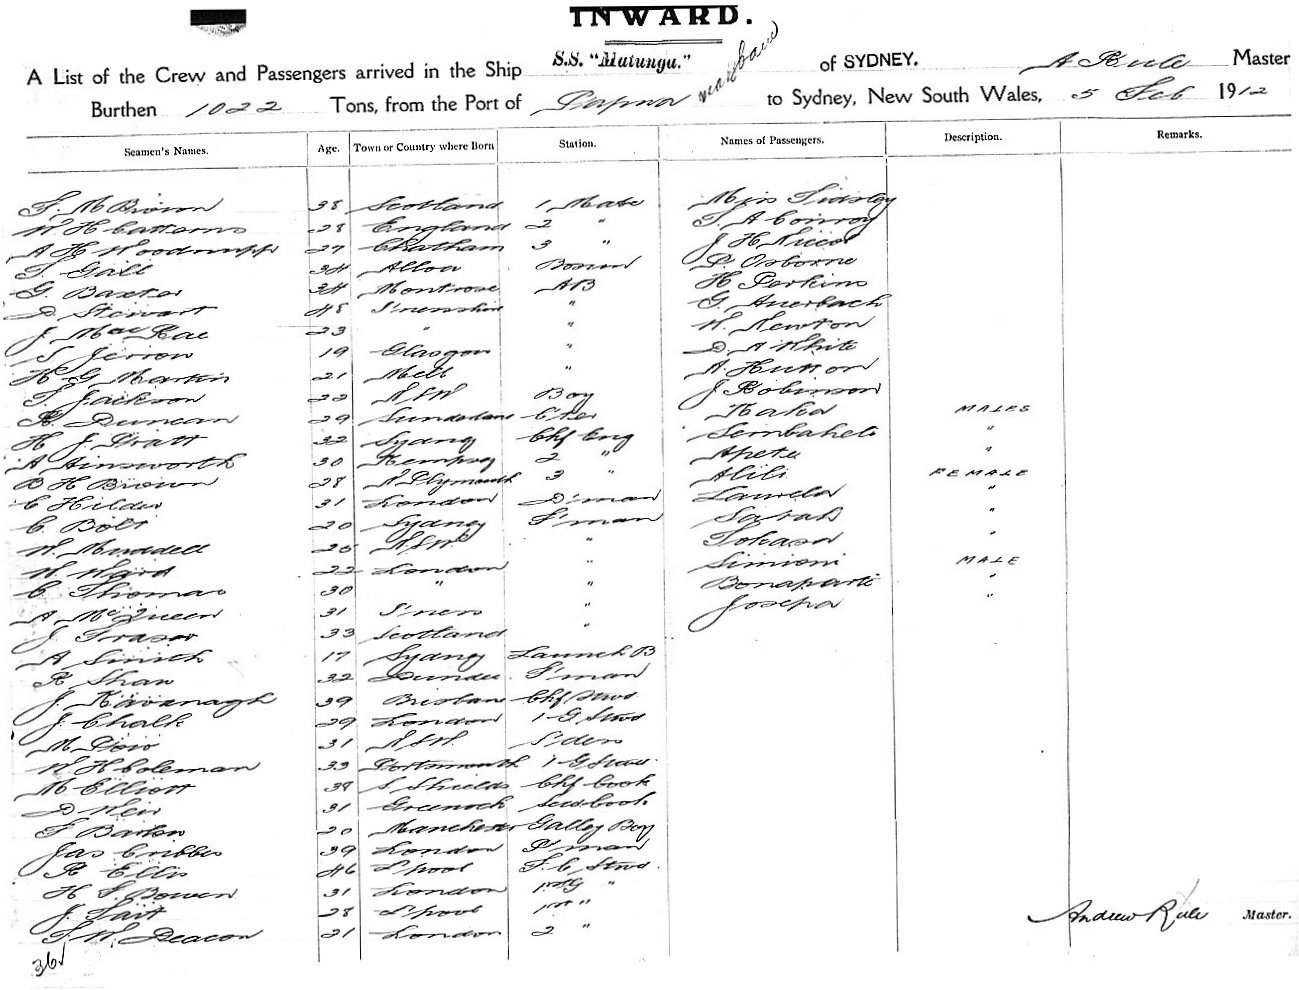 INWARD.
A List of the Crew and Passengers arrived in the Ship S.S. "Matunga." of SYDNEY. A Rule Master
Burthen 1022 Tons, from the Port of Papua via Brisbane to Sydney, New South Wales, 5 Feb 1912
Seamen's Names. Age. Town or Country where Born Station. Names of Passengers. Description. Remarks.
F. M Brown 38 Scotland 1 Mate Miss Tidsley
W H Catterns 28 England 2 " T A Conroy
A H Woodnupp 27 Chatham 3 " J H Niccol
T. Gall 34 Alloa Bosun P. Osborne
G. Baxter 34 Montrose AB H Perkins
D Stewart 48 I'nesshire " G. Auerbach
J. MacRae 23 " " W. Newton
Jerrow 19 Glasgow " D A White
H G Martin 21 Melb " A. Hutton
T. Jackson 22 NSW Boy J Robinson
R. Duncan 29 Sunderland C'ter Kaha MALES
H J. Pratt 32 Sydney Chf Eng Sembaheli "
A Ainsworth 30 Kempsey 2 " Apeta "
B H Brown 28 N Plymouth 3 " Alili FEMALE
C Hilder 31 London D'man Lauela "
C. Bolt 20 Sydney F'man Sarah "
W. Muddell 25 NSW " Tokasa "
W Ward 22 London " Simioni MALE
C Thomas 30 " " Bonaparte "
A McQueen 31 I'ness " Josepa "
J Fraser 33 Scotland "
A Smith 17 Sydney Launch B
R Shaw 32 Dundee F'man
J. Kavanagh 39 Brisbane Chf Stwd
J. Chalk 29 London 1 G Stwd
M 31 NSW S'dess
W H Coleman 33 Portsmouth 1 G Stwd
M Elliott 38 S Shields Chf Cook
D Weir 31 Greenock Cook
F Barton 20 Manchester Galley Boy
Jas Cribbes 39 London P'man
R Ellis 46 L'pool F. C Stwd.
H S Bowen 31 London "
J. Tait 28 L'pool "
F. W. Deacon 21 London 2 "
Andrew Rule Master.
36